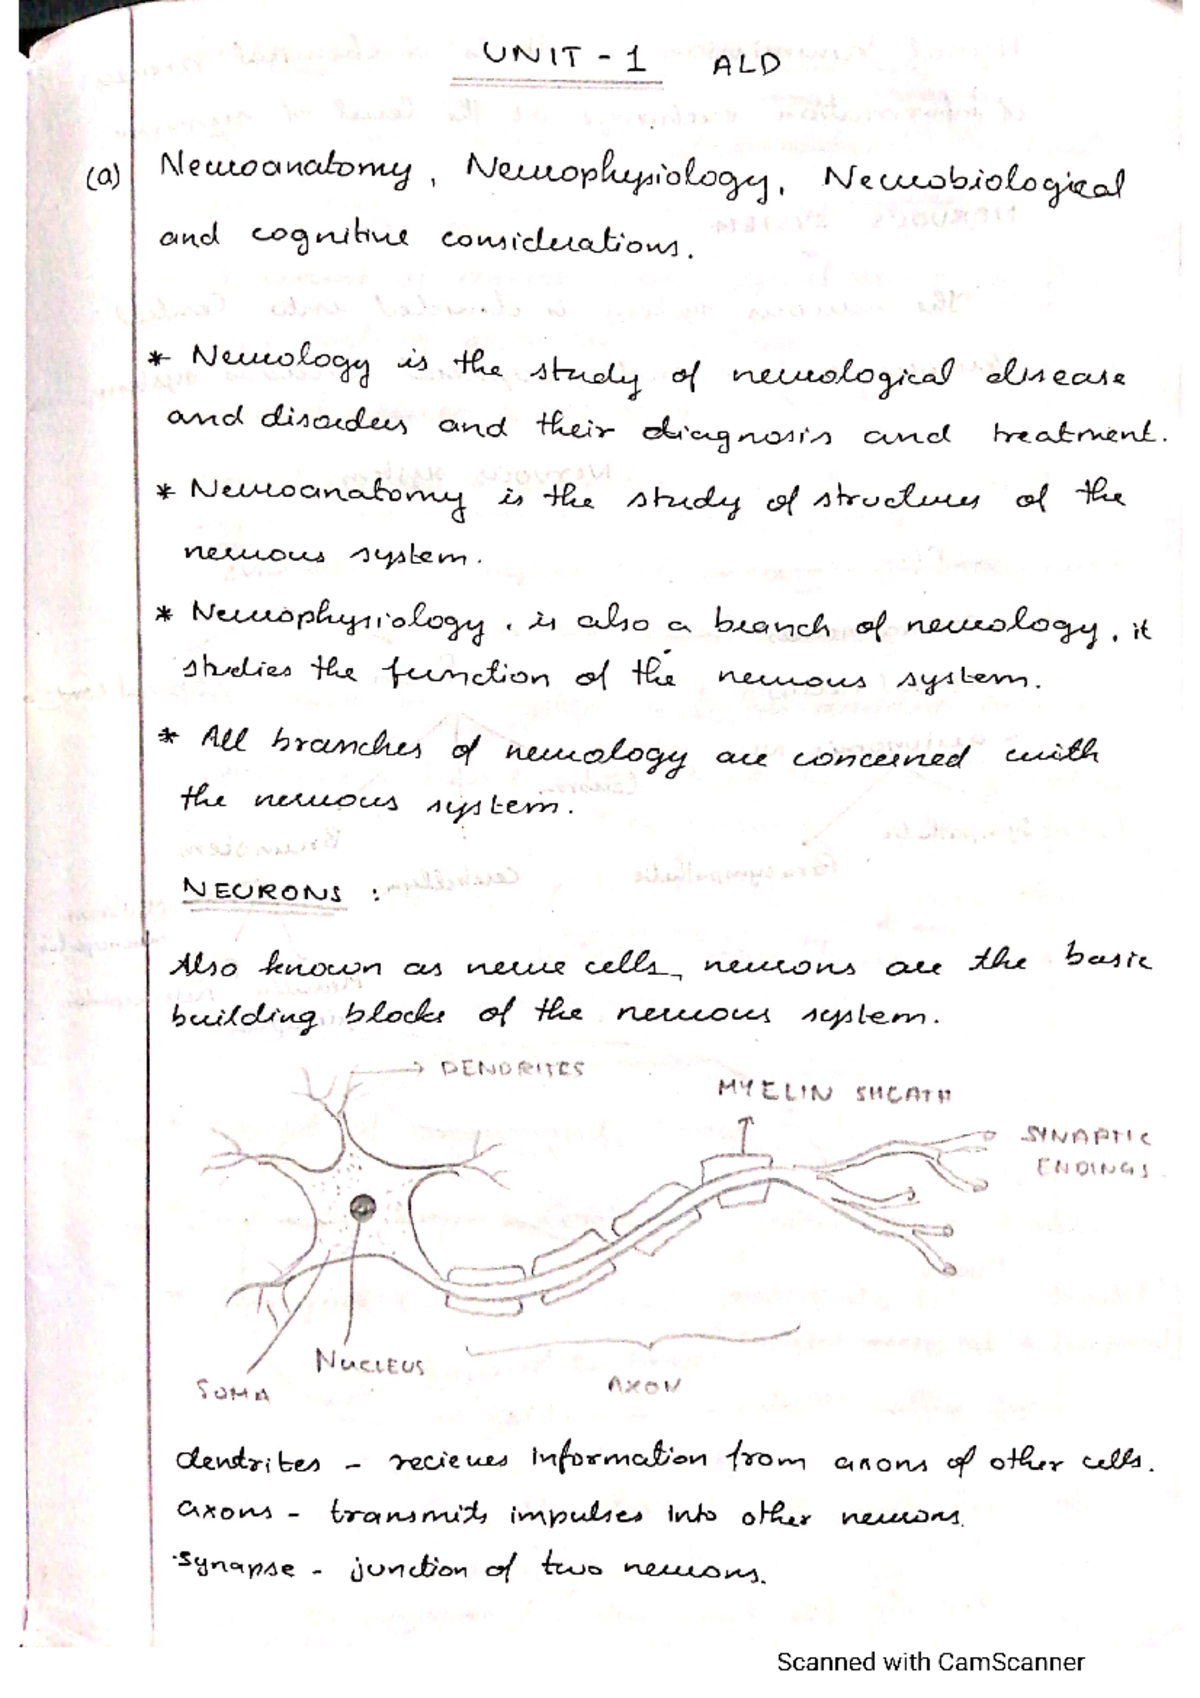 UNIT - 1 ALD
(a) Neuroanatomy, Neurophysiology, Neurobiological
and cognitive considerations.
* Neurology is the study of neurological disease
and disorders and their diagnosis and treatment.
* Neuroanatomy is the study of structures of the
nervous system.
* Neurophysiology, is also a branch of neurology, it
studies the function of the nervous system.
* All branches of neurology are concerned with
the nervous system.
NEURONS :
Also known as nerve cells, neurons are the basic
building blocks of the nervous system.
DENDRITES
MYELIN SHEATH
SYNAPTIC
ENDINGS
NUCLEUS
SOMA
AXON
dendrites - recieves information from axons of other cells.
axons - transmits impulses into other neurons.
Synapse - junction of two neurons.
Scanned with CamScanner